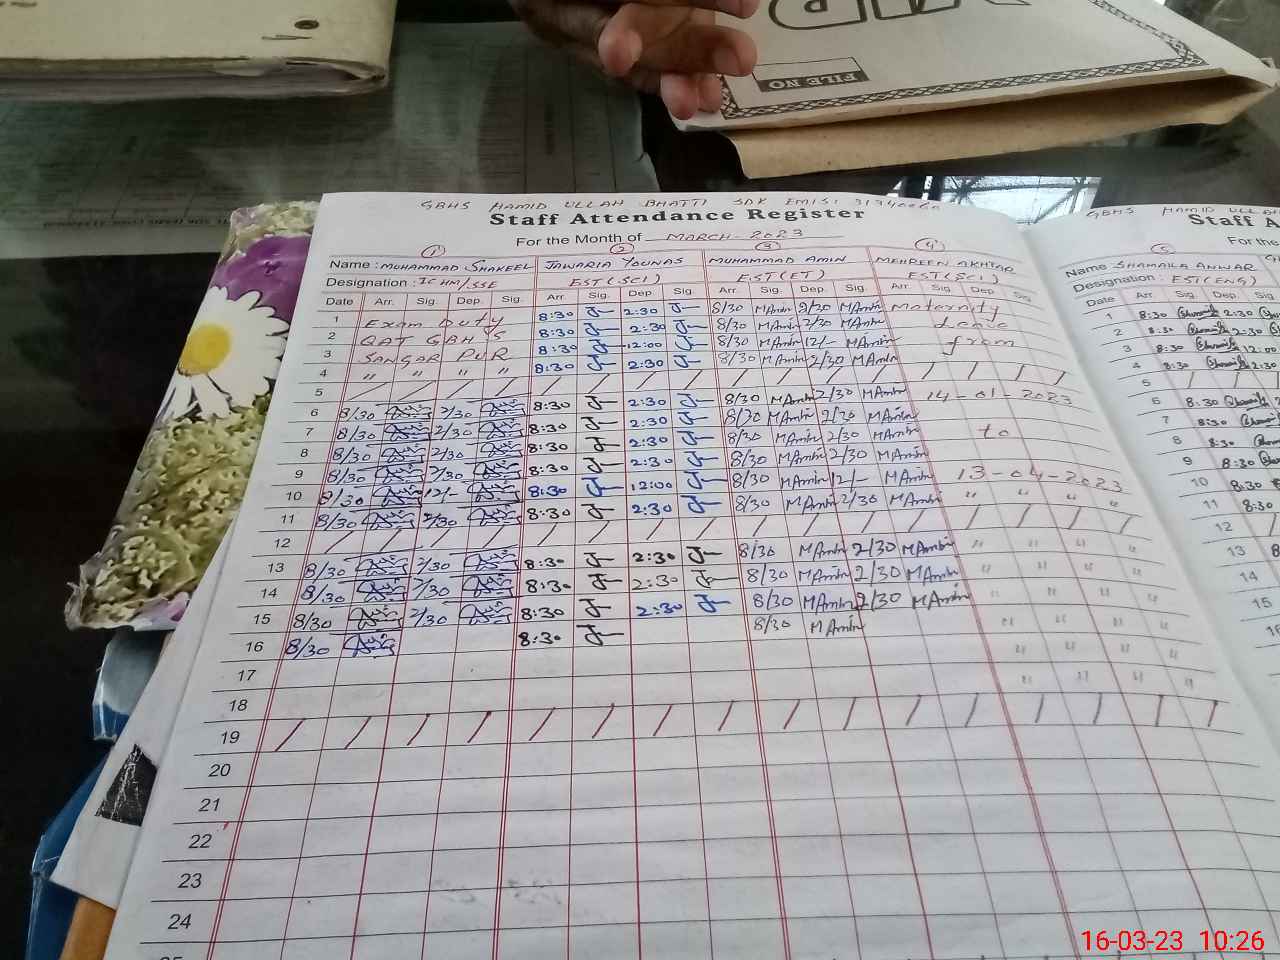 FILE NO
GBHS HAMID ULLAH BHATTI SDK EMIS:
Staff Attendance Register
For the Month of MARCH-2023
① ② ③ ④
Name : MUHAMMAD SHAKEEL JAWARIA YOUNAS MUHAMMAD AMIN MEHREEN AKHTAR
Designation : IC HM/SSE EST(SCI) EST(ET) EST(SC)
Date Arr. Sig. Dep. Sig. Arr. Sig. Dep. Sig. Arr. Sig. Dep. Sig. Arr. Sig. Dep. Sig.
1 Exam Duty 8:30 2:30 8/30 MAmin 2/30 MAmin Maternity
2 QAT GBHS 8:30 2:30 8/30 MAmin 2/30 MAmin Leave
3 SANGAR PUR 8:30 12:00 8/30 MAmin 12/- MAmin from
4 " " " " 8:30 2:30 8/30 MAmin 2/30 MAmin
5 / / / / / / / / / / / / / / / /
6 8/30 2/30 8:30 2:30 8/30 MAmin 2/30 MAmin 14-01-2023
7 8/30 2/30 8:30 2:30 8/30 MAmin 2/30 MAmin
8 8/30 2/30 8:30 2:30 8/30 MAmin 2/30 MAmin to
9 8/30 2/30 8:30 2:30 8/30 MAmin 2/30 MAmin
10 8/30 12/- 8:30 12:00 8/30 MAmin 12/- MAmin 13-04-2023
11 8/30 2/30 8:30 2:30 8/30 MAmin 2/30 MAmin " " " "
12 / / / / / / / / / / / / / / / /
13 8/30 2/30 8:30 2:30 8/30 MAmin 2/30 MAmin " " " "
14 8/30 2/30 8:30 2:30 8/30 MAmin 2/30 MAmin " " " "
15 8/30 2/30 8:30 2:30 8/30 MAmin 2/30 MAmin " " " "
16 8/30 8:30 8/30 MAmin " " " "
17 " " " "
18
19 / / / / / / / / / / / / / / / /
20
21
22
23
24
GBHS HAMID
Staff
For the
⑤
Name SHAMAILA ANWAR
Designation : EST(ENG)
Date Arr. Sig. Dep. Sig.
1 8:30 2:30
2 8:30 2:30
3 8:30 12:00
4 8:30 2:30
5 / /
6 8:30
7 8:30
8 8:30
9 8:30
10 8:30
11 8:30
12 /
13
14
15
16-03-23 10:26